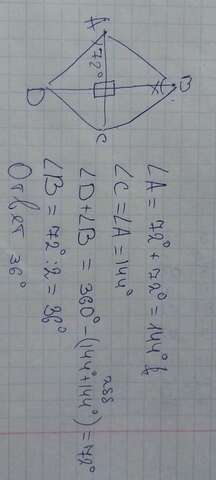 A
72°
D
B
C
∠A = 72° + 72° = 144°
∠C = ∠A = 144°
288
∠D + ∠B = 360° - (144° + 144°) = 72°
∠B = 72° : 2 = 36°
Ответ 36°